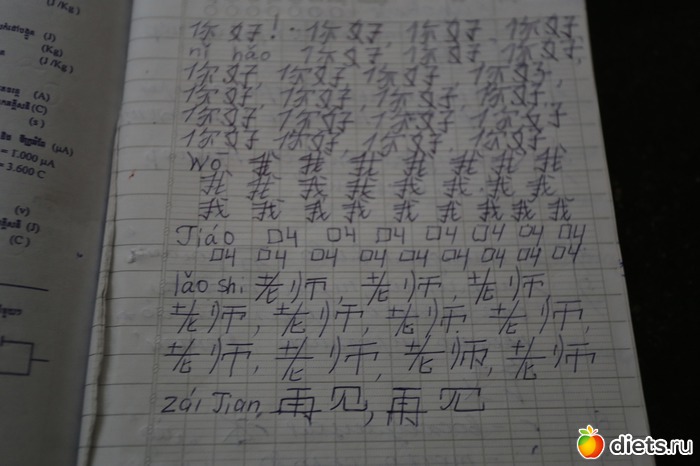 (J/Kg)
(J)
(Kg)
(J/Kg)
(A)
(C)
(s)
(μA)
= 1.000 μA
= 3.600 C
(v)
(J)
(C)
你好!·你好, 你好, 你好,
nǐ hǎo 你好, 你好, 你好,
你好, 你好, 你好, 你好,
你好, 你好, 你好, 你好,
你好, 你好, 你好, 你好,
你好, 你好, 你好, 你好,
Wǒ 我 我 我 我 我 我
我 我 我 我 我 我 我
我 我 我 我 我 我 我 我
Jiáo 叫 叫 叫 叫 叫 叫 叫
叫 叫 叫 叫 叫 叫 叫 叫
lǎo shi 老师, 老师, 老师,
老师, 老师, 老师, 老师,
老师, 老师, 老师, 老师
zái Jian, 再见, 再见
diets.ru